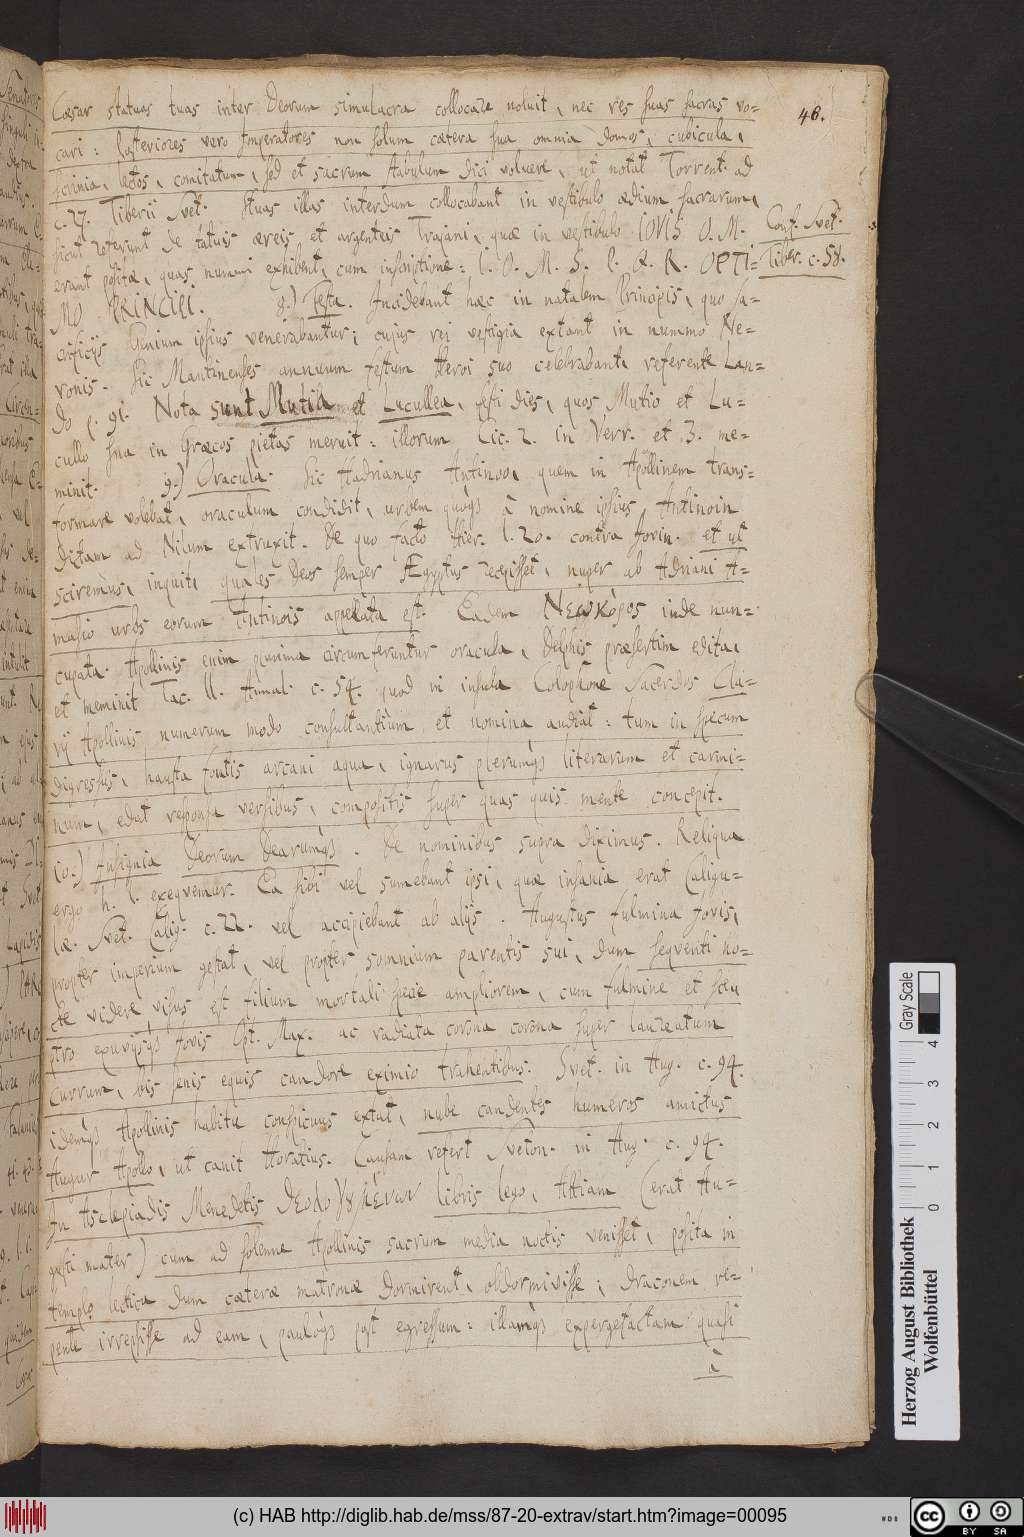 46.
Cæsar statuas tuas inter Deorum simulacra collocare noluit, nec res suas sacras vo=
cari: Posteriores vero Imperatores non solum cætera sua omnia domos, cubicula,
scrinia, lectos, comitatum, sed et sacrum stabulum dici voluere, ut notat Torrent. ad
c. 27. Tiberii Svet. Stuas illas interdum collocabant in vestibulo ædium sacrarum,
sicut referunt de statuis æreis et argenteis Trajani, quæ in vestibulo IOVIS O. M.
Conf. Svet.
Tiber. c. 58.
erant positæ, quas nummi exhibent, cum inscriptione: I. O. M. S. P. Q. R. OPTI=
MO PRINCIPI. 8.) Festa. Incidebant hæc in natalem Principis, quo sa=
crificijs Genium ipsius venerabantur; cujus rei vestigia extant in nummo Ne=
ronis. Sic Mantinenses annuum festum Heroi suo celebrabant, referente Lan=
do p. 91. Nota sunt Mutia et Lucullea, festi dies, quos Mutio et Lu=
cullo sua in Græcos pietas meruit: illorum Cic. 2. in Verr. et 3. me=
minit. 9.) Oracula. Sic Hadrianus Antinoo, quem in Apollinem trans=
formare volebat, oraculum condidit, urbem quoqs à nomine ipsius Antinoin
dictam ad Nilum extruxit. De quo facto Hier. l. 20. contra Jovin. et ut
sciremus, inquit, quales Deos semper Ægyptus recepisset, nuper ab Adriani A=
masio urbs eorum Antinois appellata est. Eadem Νεωκόρος inde nun=
cupata. Apollinis enim plurima circumferuntur oracula, Delphis præsertim edita,
et meminit Tac. II. Annal. c. 54. quod in insula Colophone Sacerdos Cla=
rij Apollinis numerum modo consultantium et nomina audiat: tum in specum
digressus, hausta fontis arcani aqua, ignarus plerumqs literarum et carmi=
num, edat responsa versibus, compositis super quas quis mente concepit.
10.) Insignia Deorum Dearumqs. De nominibus supra diximus. Reliqua
ergo h. l. exequemur. Ea sibi vel sumebant ipsi, quæ insania erat Caligu=
læ. Svet. Calig. c. 22. vel accipiebant ab alijs. Augustus fulmina Jovis,
propter imperium gestat, vel propter somnium parentis sui, dum sequenti no=
cte videre visus est filium mortali specie ampliorem, cum fulmine et sce
ptro exuvijsqs Jovis Opt. Max. ac radiata corona corona super laureatum
currum, bis senis equis candore eximio trahentibus. Svet. in Aug. c. 94.
idemqs Apollinis habitu conspicuus extat, nube candentes humeros amictus
Augur Apollo, ut canit Horatius. Causam refert Sveton. in Aug. c. 94.
In Asclepiadis Mendetis Θεολογουμένων libris lego, Attiam (erat Au=
gusti mater) cum ad solenne Apollinis sacrum media noctis venisset, posita in
templo lectica dum cæteræ matronæ dormirent, obdormivisse; draconem re=
pente irrepsisse ad eam, pauloqs post egressum: illamqs expergefactam quasi
à
Gray Scale
0 1 2 3 4
Herzog August Bibliothek
Wolfenbüttel
(c) HAB http://diglib.hab.de/mss/87-20-extrav/start.htm?image=00095
cc BY SA